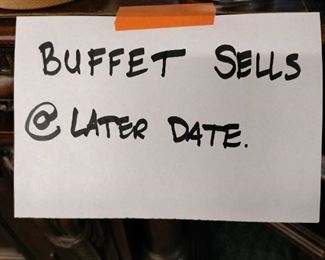 BUFFET SELLS
@ LATER DATE.